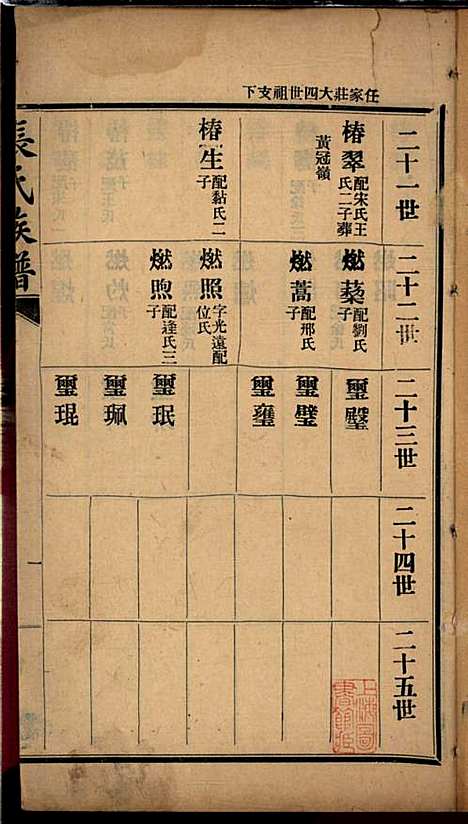 任家莊大四世祖支下
二十一世
椿翠配宋氏王氏二子葬黃冠嶺
椿生配黏氏二子
二十二世
燃蓁配劉氏
燃蒿配邢氏二子
燃照字光遠配位氏
燃煦配逄氏三子
二十三世
璽
璽璧
璽瓏
璽珉
璽珮
璽琨
二十四世
二十五世
張氏族譜
一